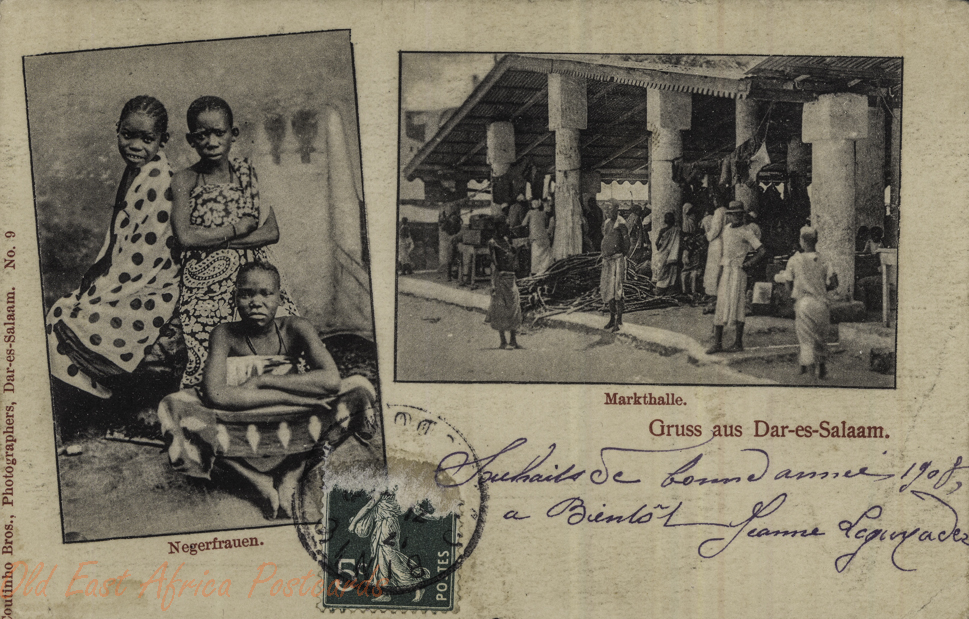 Coutinho Bros., Photographers, Dar-es-Salaam. No. 9
Negerfrauen.
Markthalle.
Gruss aus Dar-es-Salaam.
Souhaits de bonne année 1908,
a Bientôt Jeanne
5
POSTES
Old East Africa Postcards